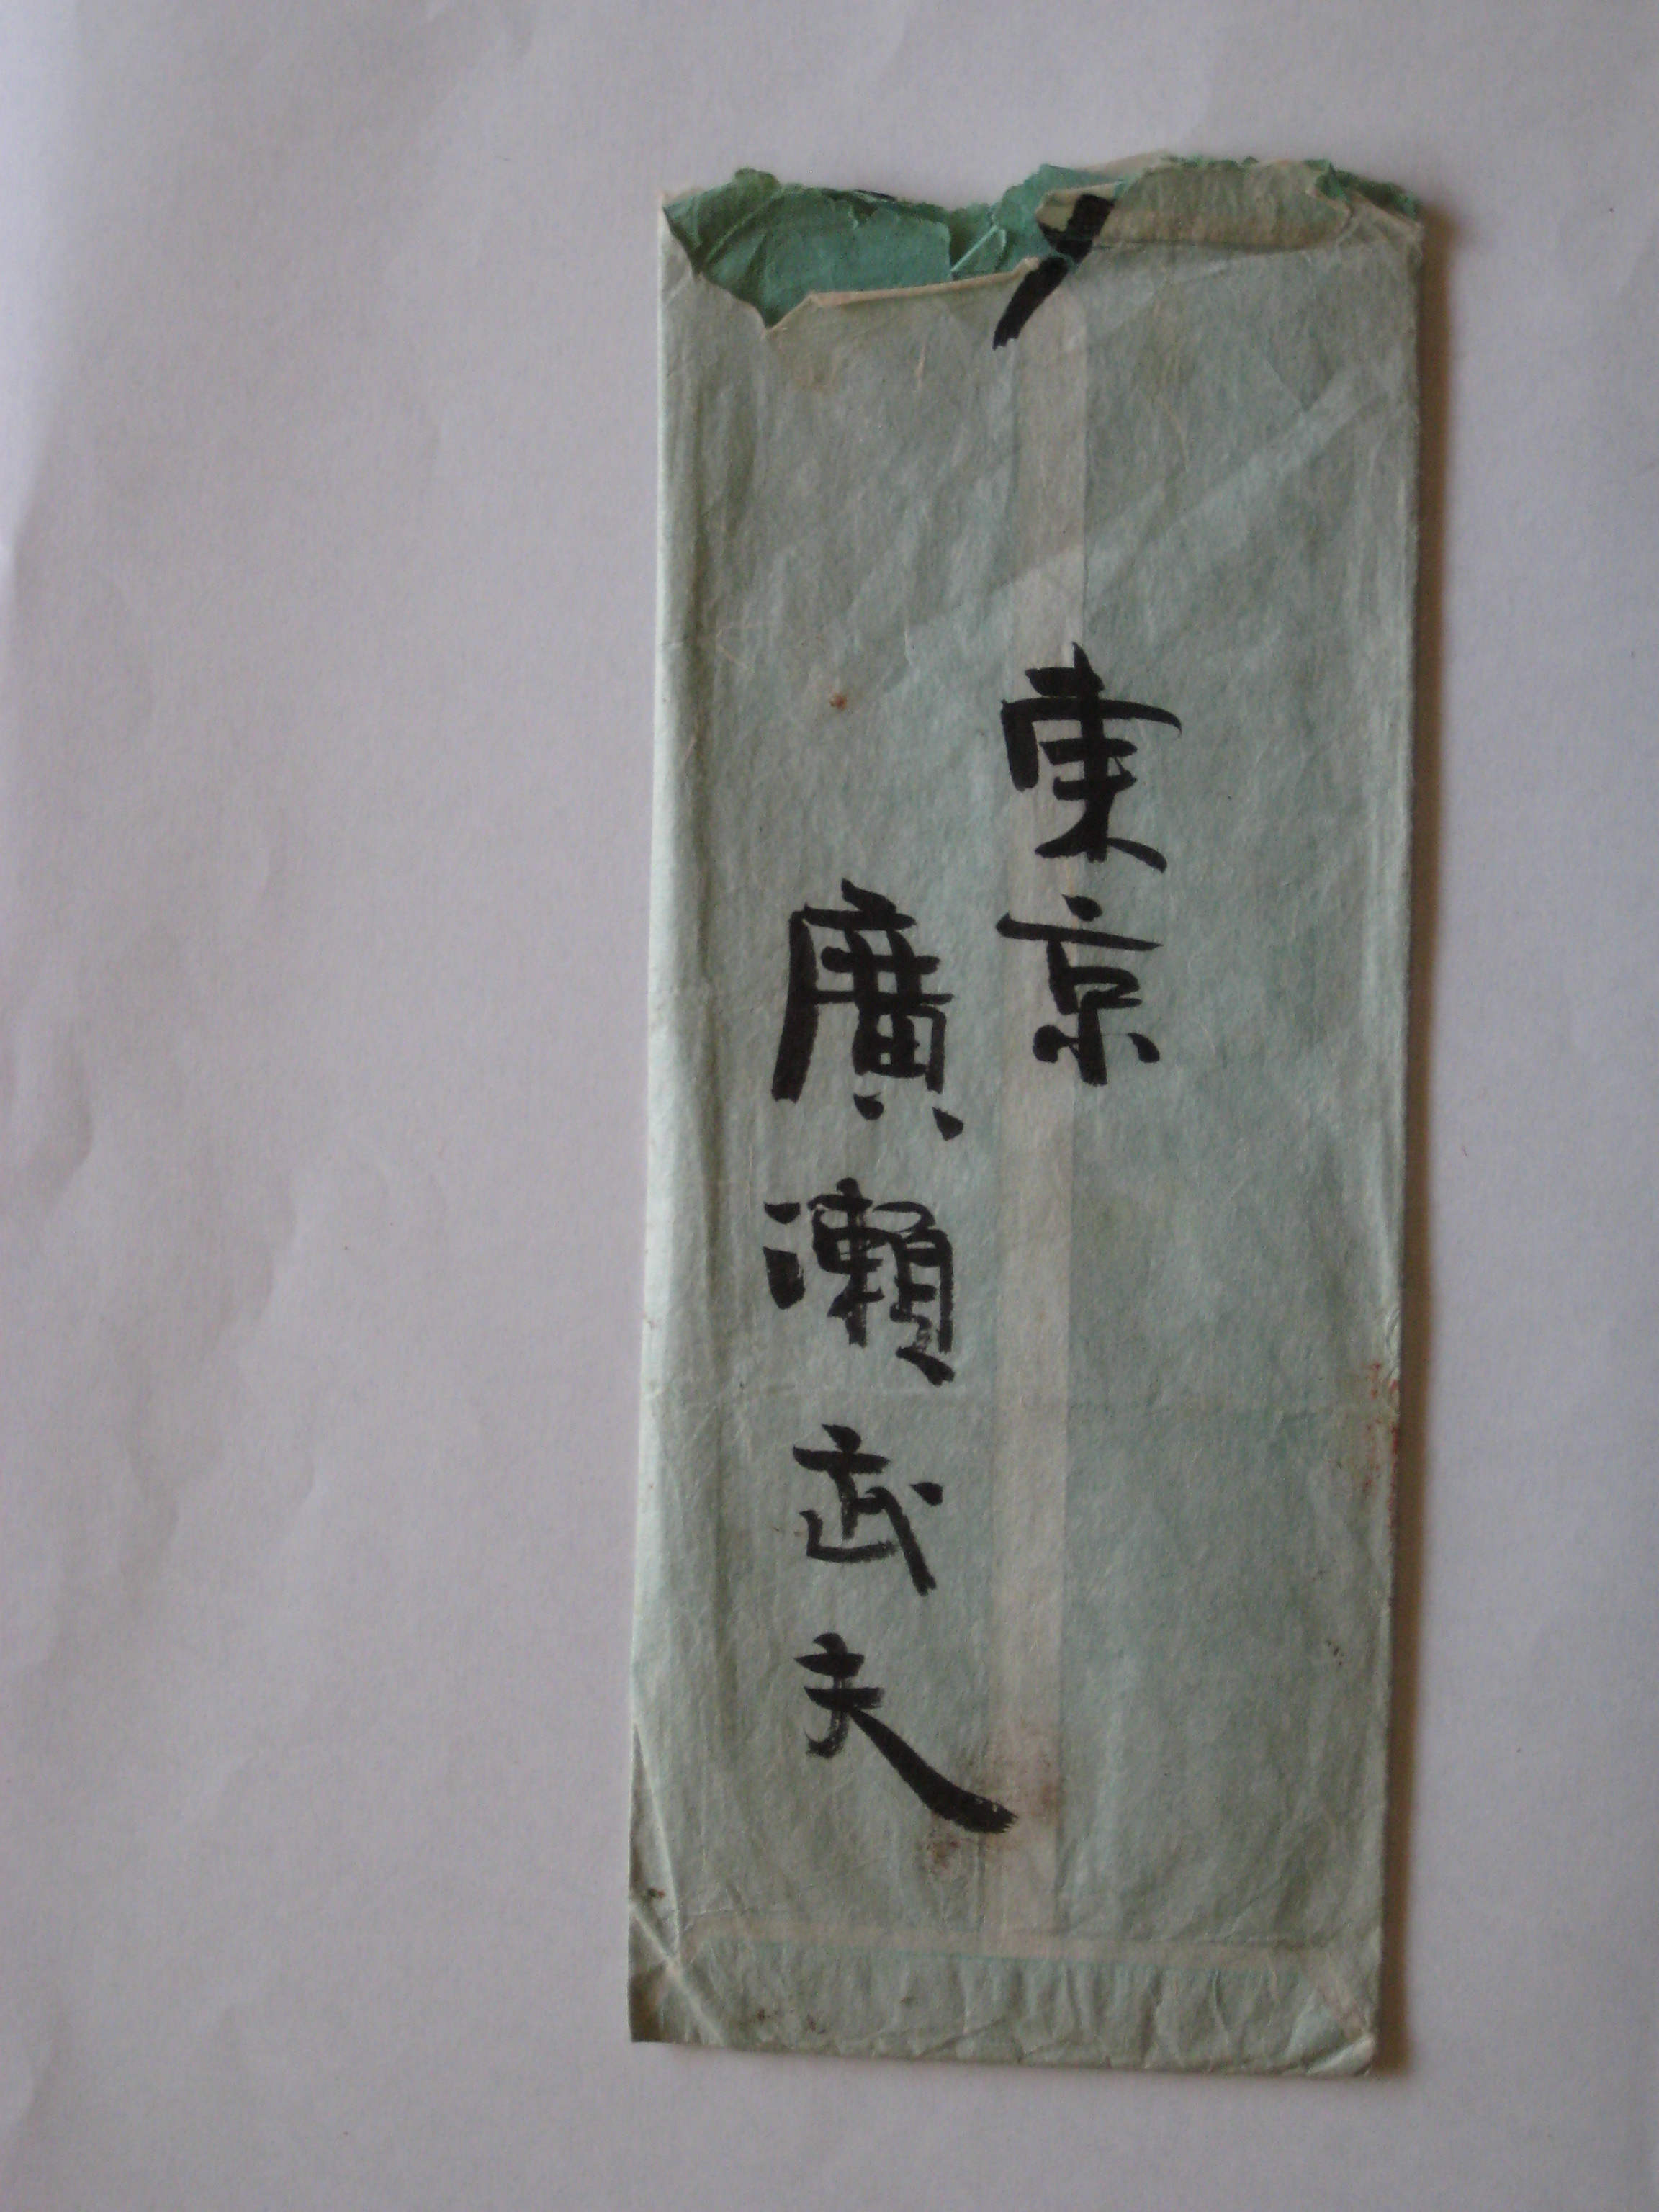 東京
廣瀬武夫